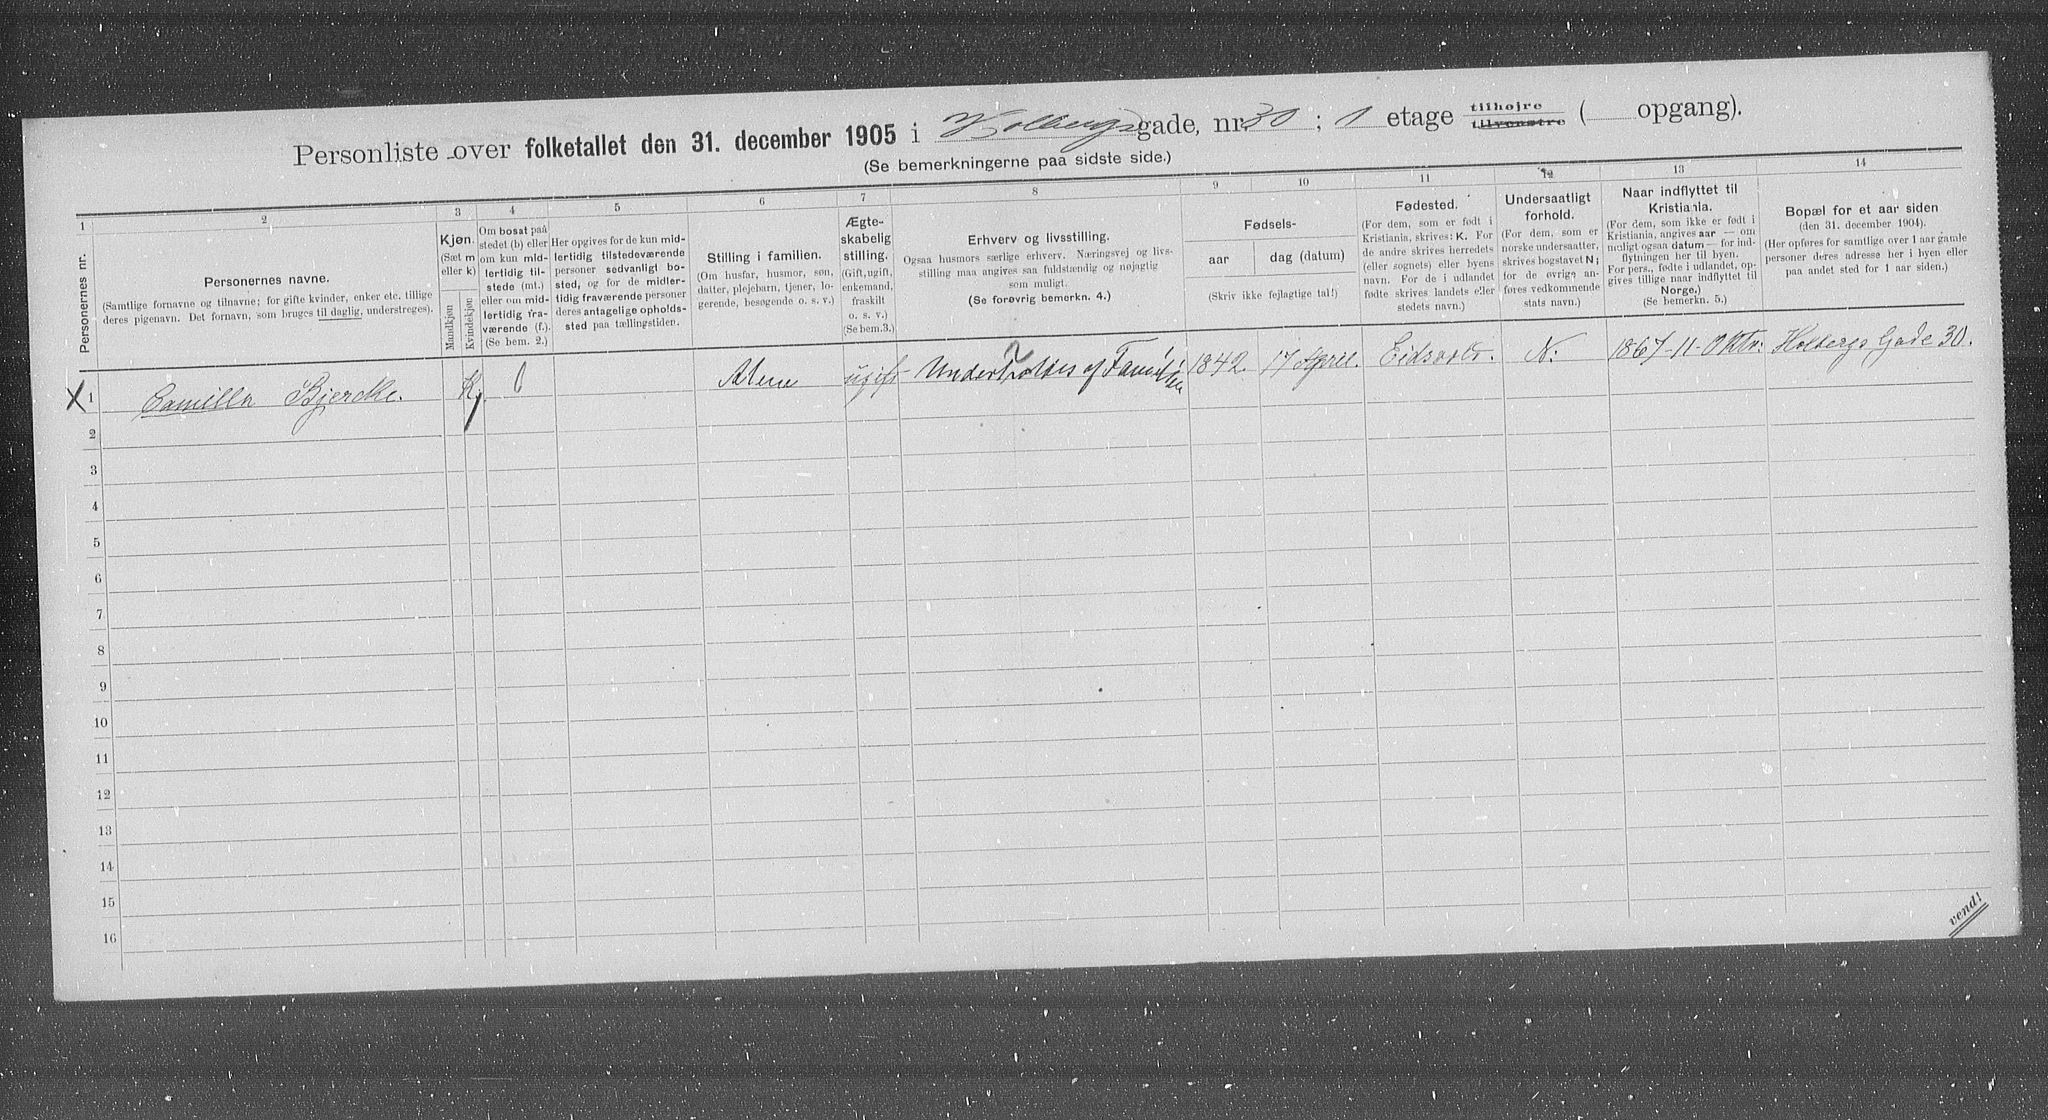 Personliste over folketallet den 31. december 1905 i Holbergsgade, nr. 30; 1 etage tilhøjre tilvenstre ( opgang).
(Se bemerkningerne paa sidste side.)
1 2 3 4 5 6 7 8 9 10 11 12 13 14
Personernes nr.
Personernes navne.
(Samtlige fornavne og tilnavne; for gifte kvinder, enker etc. tillige
deres pigenavn. Det fornavn, som bruges til daglig, understreges).
Kjøn.
(Sæt m
eller k)
Mandkjøn
Kvindekjøn
Om bosat paa
stedet (b) eller
om kun mid-
lertidig til-
stede (mt.)
eller om mid-
lertidig fra-
værende (f.).
(Se bem. 2.)
Her opgives for de kun mid-
lertidig tilstedeværende
personer sedvanligt bo-
sted, og for de midler-
tidig fraværende personer
deres antagelige opholds-
sted paa tællingstiden.
Stilling i familien.
(Om husfar, husmor, søn,
datter, plejebarn, tjener, lo-
gerende, besøgende o. s. v.)
Ægte-
skabelig
stilling.
(Gift, ugift,
enkemand,
fraskilt
o. s. v.)
(Se bem. 3.)
Erhverv og livsstilling.
Ogsaa husmors særlige erhverv. Næringsvej og livs-
stilling maa angives saa fuldstændig og nøjagtig
som muligt.
(Se forøvrig bemerkn. 4.)
Fødsels-
aar
dag (datum)
(Skriv ikke fejlagtige tal!)
Fødested.
(For dem, som er født i
Kristiania, skrives: K. For
de andre skrives herredets
(eller sognets) eller byens
navn. For de i udlandet
fødte skrives landets eller
stedets navn.)
Undersaatligt
forhold.
(For dem, som er
norske undersaatter,
skrives bogstavet N;
for de øvrige an-
føres vedkommende
stats navn.)
Naar indflyttet til
Kristiania.
(For dem, som ikke er født i
Kristiania, angives aar — om
muligt ogsaa datum — for ind-
flytningen her til byen.
For pers., fødte i udlandet, op-
gives tillige naar indflyttet til
Norge.)
(Se bemerkn. 5.)
Bopæl for et aar siden
(den 31. december 1904).
(Her opføres for samtlige over 1 aar gamle
personer deres adresse her i byen eller
paa andet sted for 1 aar siden.)
X 1 Camilla Bjercke. K. b Alene ugift Underholdes af Familien 1842. 17 April. Eidsvold. N. 1867-11-Oktr. Holbergs Gade 30.
2
3
4
5
6
7
8
9
10
11
12
13
14
15
16
vend!